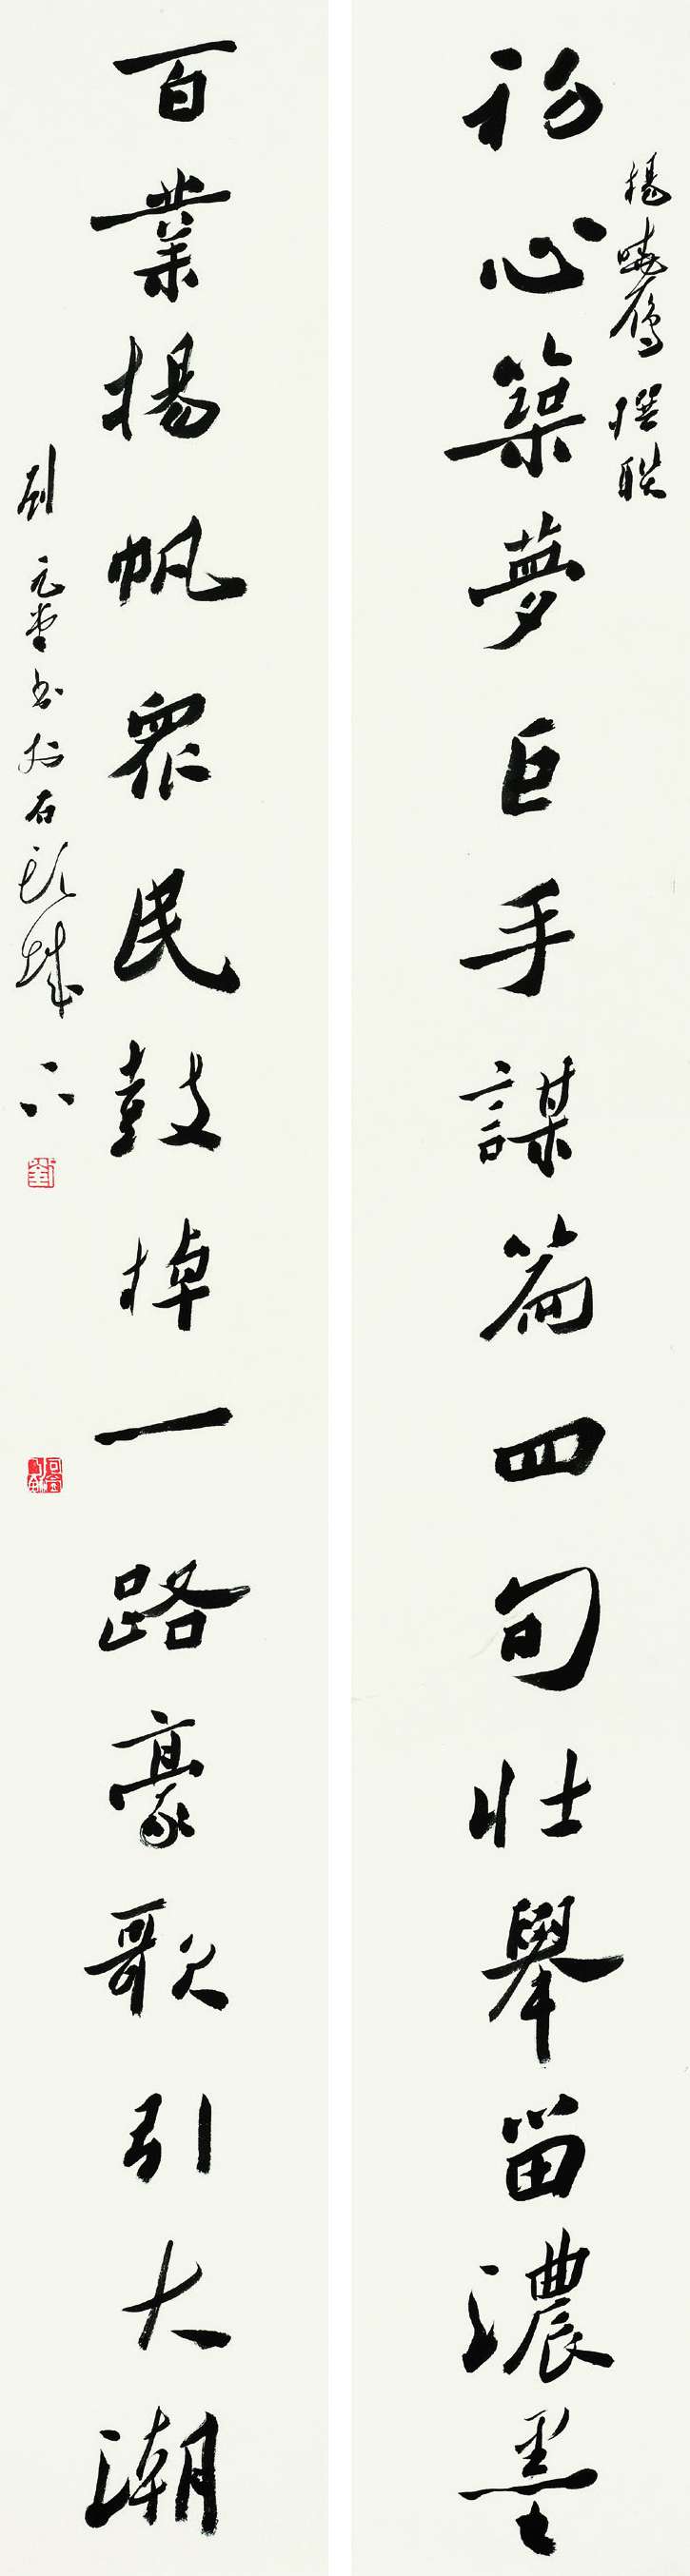 楊曉雁撰聯
初心築夢巨手謀篇四旬壯舉留濃墨
百業揚帆眾民鼓棹一路豪歌引大潮
劉元堂書於石頭城下
劉